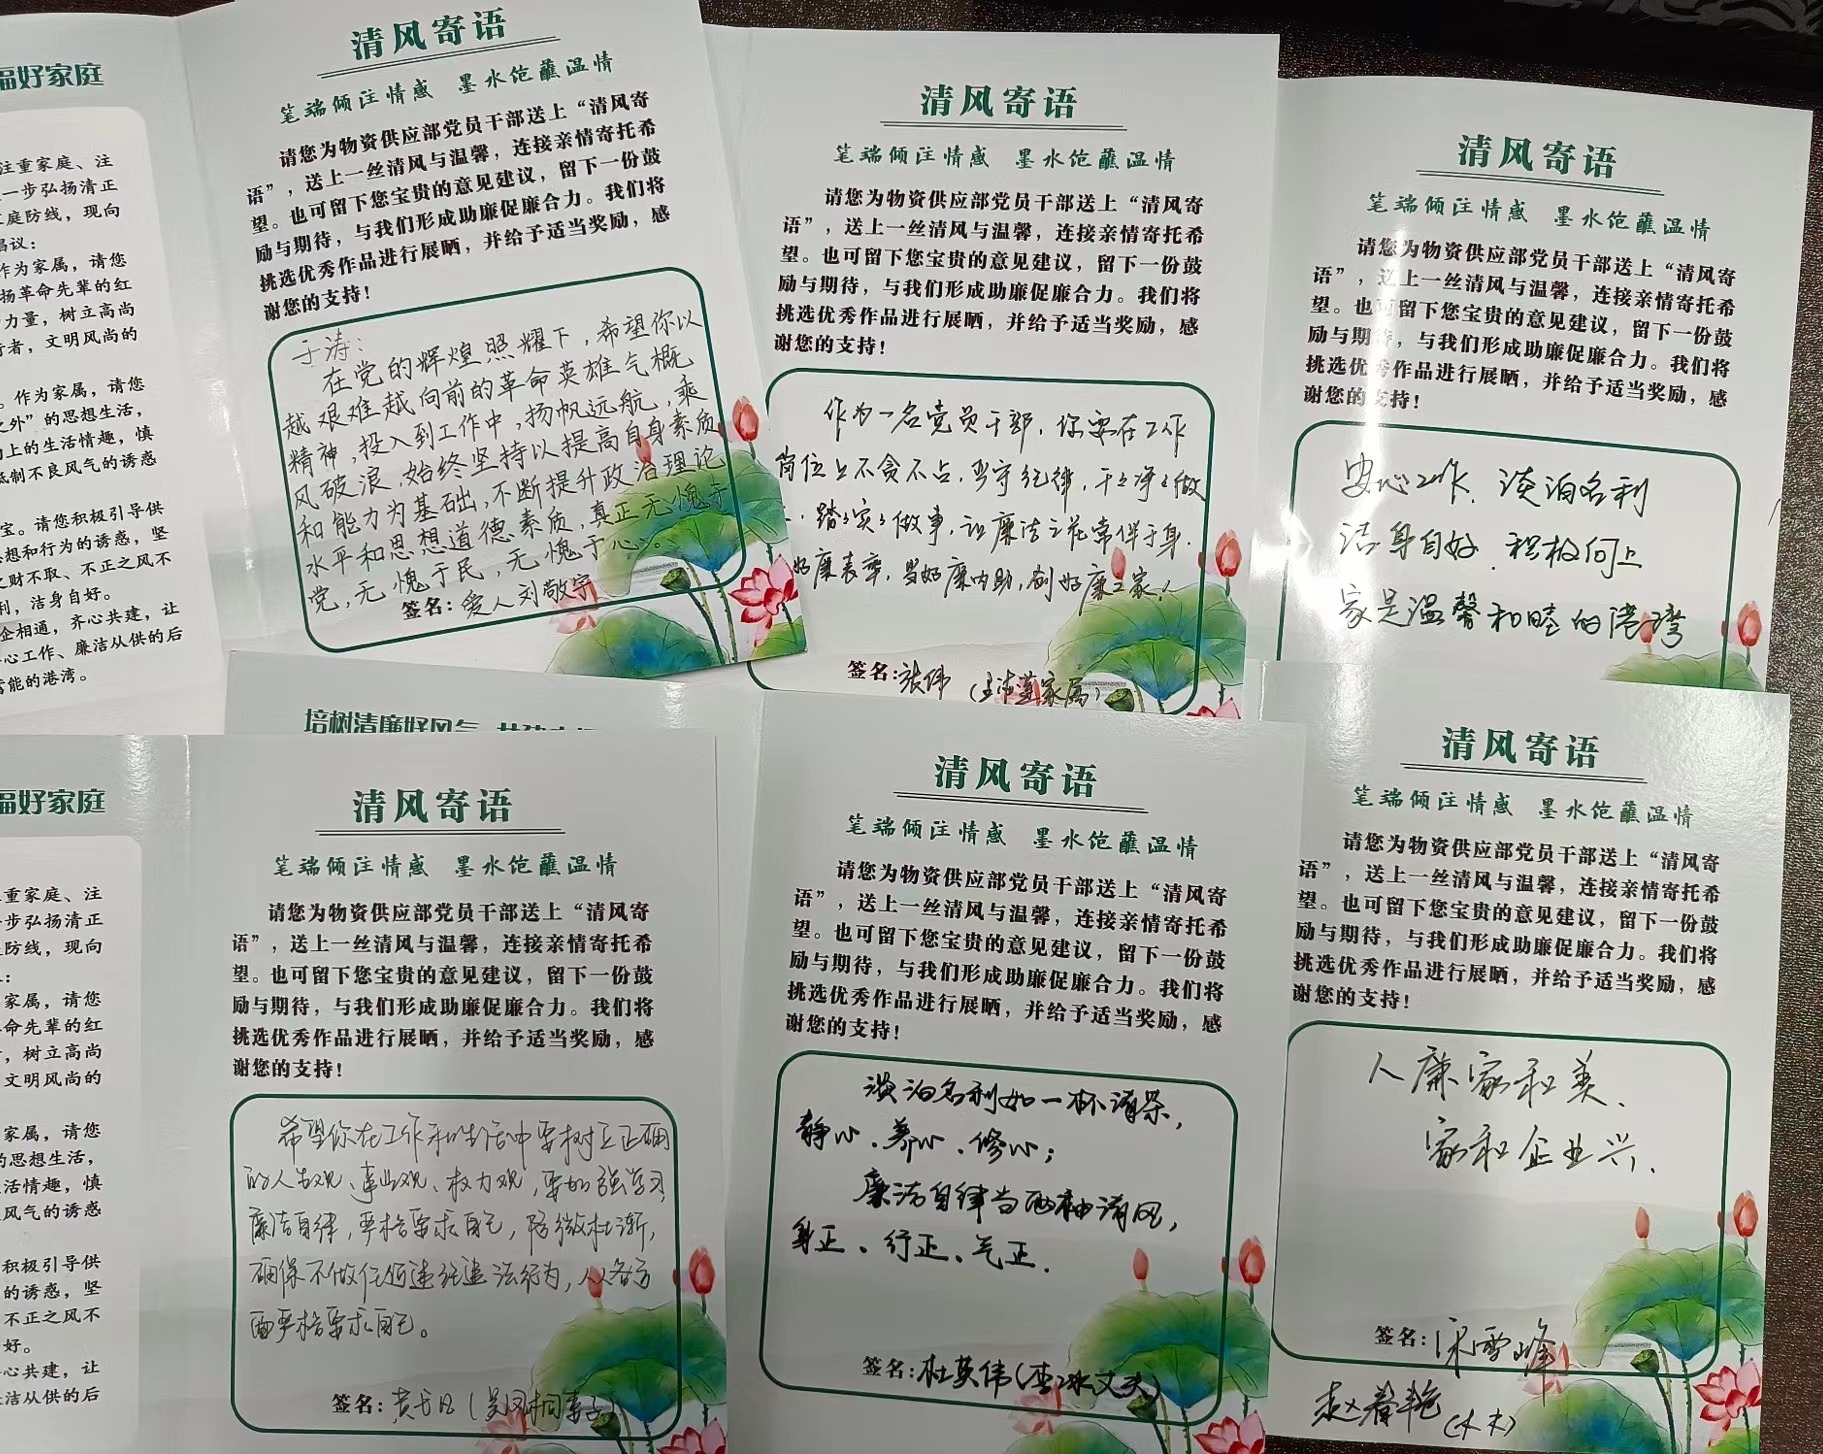 福好家庭
注重家庭、注
一步弘扬清正
庭防线，现向
倡议：
作为家属，请您
扬革命先辈的红
力量，树立高尚
行者，文明风尚的
。作为家属，请您
之外”的思想生活，
向上的生活情趣，慎
抵制不良风气的诱惑
宝。请您积极引导供
想和行为的诱惑，坚
之财不取、不正之风不
利，洁身自好。
企相通，齐心共建，让
心工作、廉洁从供的后
能的港湾。
清风寄语
笔端倾注情感 墨水饱蘸温情
请您为物资供应部党员干部送上“清风寄
语”，送上一丝清风与温馨，连接亲情寄托希
望。也可留下您宝贵的意见建议，留下一份鼓
励与期待，与我们形成助廉促廉合力。我们将
挑选优秀作品进行展晒，并给予适当奖励，感
谢您的支持！
于涛：
在党的辉煌照耀下，希望你以
越艰难越向前的革命英雄气概
精神，投入到工作中，扬帆远航，乘
风破浪，始终坚持以提高自身素质
和能力为基础，不断提升政治理论
水平和思想道德素质，真正无愧于
党，无愧于民，无愧于心。
签名：爱人刘敬宇
清风寄语
笔端倾注情感 墨水饱蘸温情
请您为物资供应部党员干部送上“清风寄
语”，送上一丝清风与温馨，连接亲情寄托希
望。也可留下您宝贵的意见建议，留下一份鼓
励与期待，与我们形成助廉促廉合力。我们将
挑选优秀作品进行展晒，并给予适当奖励，感
谢您的支持！
作为一名党员干部，你要在工作
岗位上不贪不占，严守纪律，干干净净做
，踏踏实实做事，让廉洁之花常伴于身，
好廉表率，当好廉内助，创好廉之家。
签名：张伟（家属）
清风寄语
笔端倾注情感 墨水饱蘸温情
请您为物资供应部党员干部送上“清风寄
语”，送上一丝清风与温馨，连接亲情寄托希
望。也可留下您宝贵的意见建议，留下一份鼓
励与期待，与我们形成助廉促廉合力。我们将
挑选优秀作品进行展晒，并给予适当奖励，感
谢您的支持！
安心工作，淡泊名利
洁身自好，积极向上
家是温馨和睦的港湾
培树清廉好风气
福好家庭
重家庭、注
步弘扬清正
防线，现向
：
家属，请您
命先辈的红
，树立高尚
文明风尚的
家属，请您
的思想生活，
活情趣，慎
风气的诱惑
积极引导供
的诱惑，坚
不正之风不
好。
心共建，让
洁从供的后
清风寄语
笔端倾注情感 墨水饱蘸温情
请您为物资供应部党员干部送上“清风寄
语”，送上一丝清风与温馨，连接亲情寄托希
望。也可留下您宝贵的意见建议，留下一份鼓
励与期待，与我们形成助廉促廉合力。我们将
挑选优秀作品进行展晒，并给予适当奖励，感
谢您的支持！
希望你在工作和生活中要树立正确
的人生观、事业观、权力观，要加强学习，
廉洁自律，严格要求自己，防微杜渐，
确保不做任何违纪违法行为，从各方
面严格要求自己。
签名：
清风寄语
笔端倾注情感 墨水饱蘸温情
请您为物资供应部党员干部送上“清风寄
语”，送上一丝清风与温馨，连接亲情寄托希
望。也可留下您宝贵的意见建议，留下一份鼓
励与期待，与我们形成助廉促廉合力。我们将
挑选优秀作品进行展晒，并给予适当奖励，感
谢您的支持！
淡泊名利如一杯清茶，
静心、养心、修心；
廉洁自律当两袖清风，
身正、行正、气正．
签名：杜英伟（李冰丈夫）
清风寄语
笔端倾注情感 墨水饱蘸温情
请您为物资供应部党员干部送上“清风寄
语”，送上一丝清风与温馨，连接亲情寄托希
望。也可留下您宝贵的意见建议，留下一份鼓
励与期待，与我们形成助廉促廉合力。我们将
挑选优秀作品进行展晒，并给予适当奖励，感
谢您的支持！
人廉家和美．
家和企业兴．
签名：宋雪峰
赵春艳（丈夫）